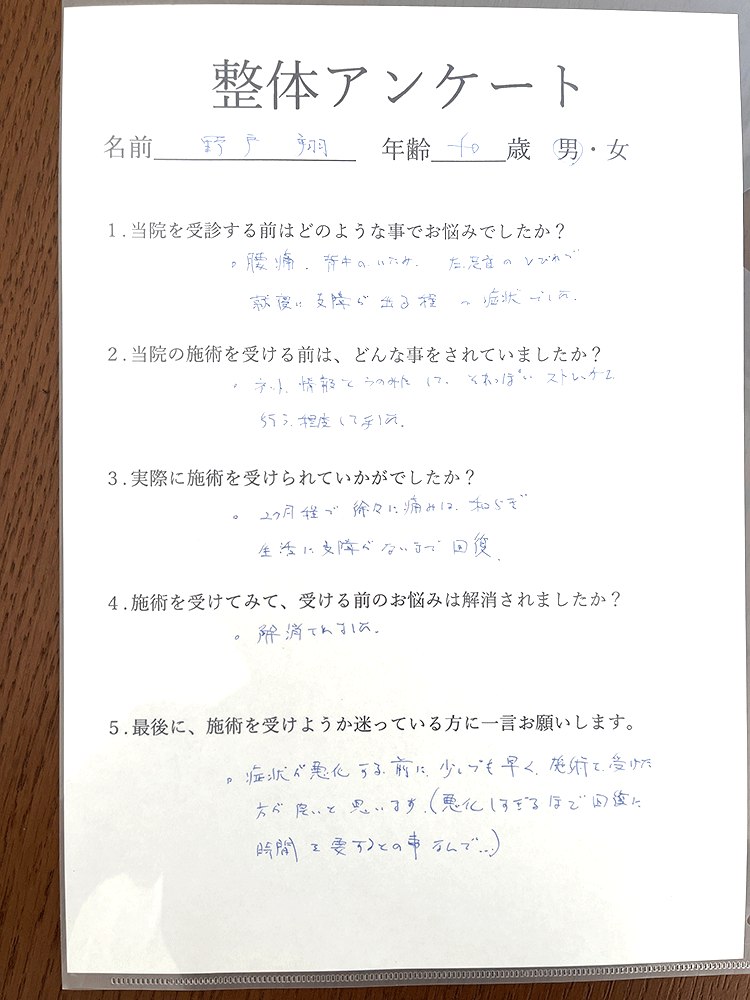 整体アンケート
名前 野戸 翔 年齢 40 歳 男・女
1.当院を受診する前はどのような事でお悩みでしたか？
。腰痛、背中のいたみ、左足のしびれで
就寝に支障が出る程の症状でした。
2.当院の施術を受ける前は、どんな事をされていましたか？
。ネット情報をうのみにして、それっぽいストレッチを
行う程度してました。
3.実際に施術を受けられていかがでしたか？
。2ヶ月程で徐々に痛みは、和らぎ
生活に支障がないまで回復。
4.施術を受けてみて、受ける前のお悩みは解消されましたか？
。解消されました。
5.最後に、施術を受けようか迷っている方に一言お願いします。
。症状が悪化する前に、少しでも早く、施術を受けた
方が良いと思います。(悪化しすぎるほど回復に
時間を要するとの事なんで…)